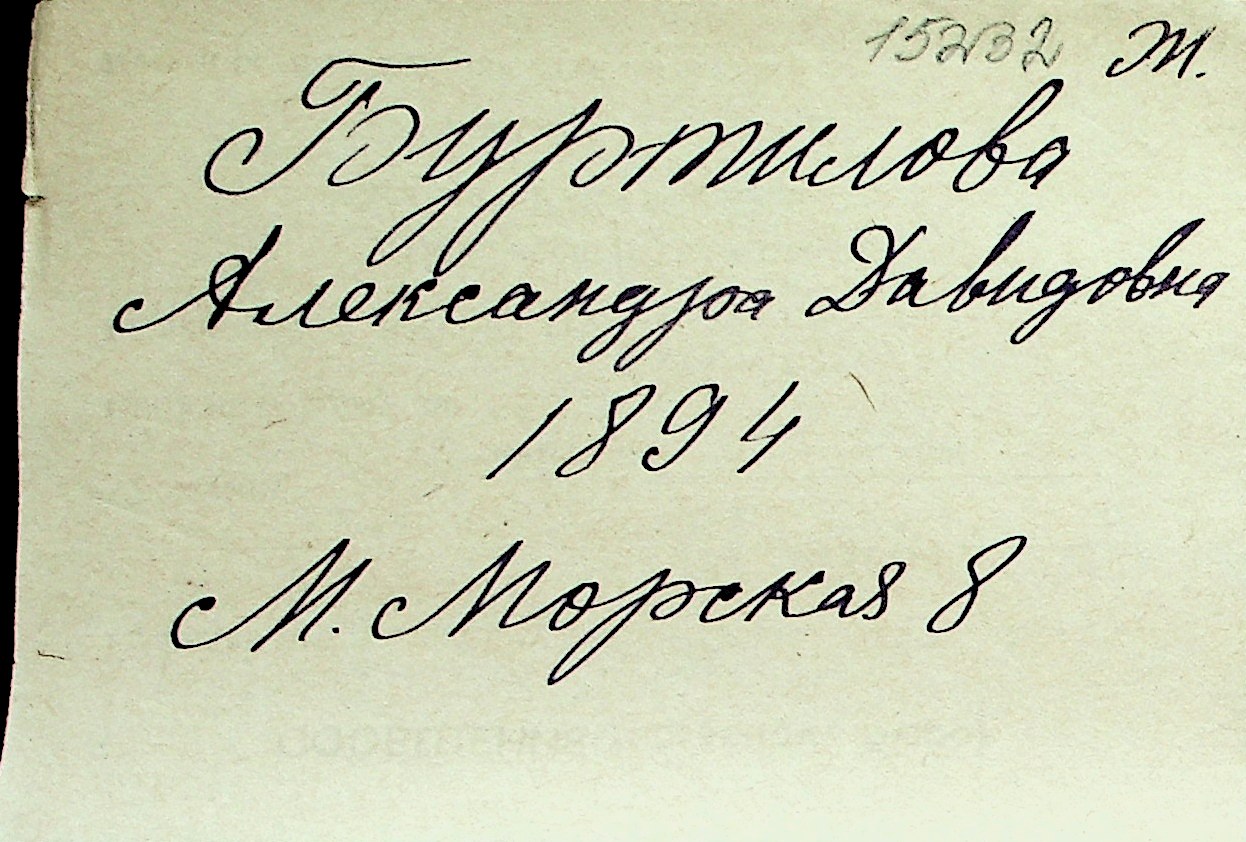 15232 Ж.
Буртилова
Александра Давидовна
1894
М. Морская 8